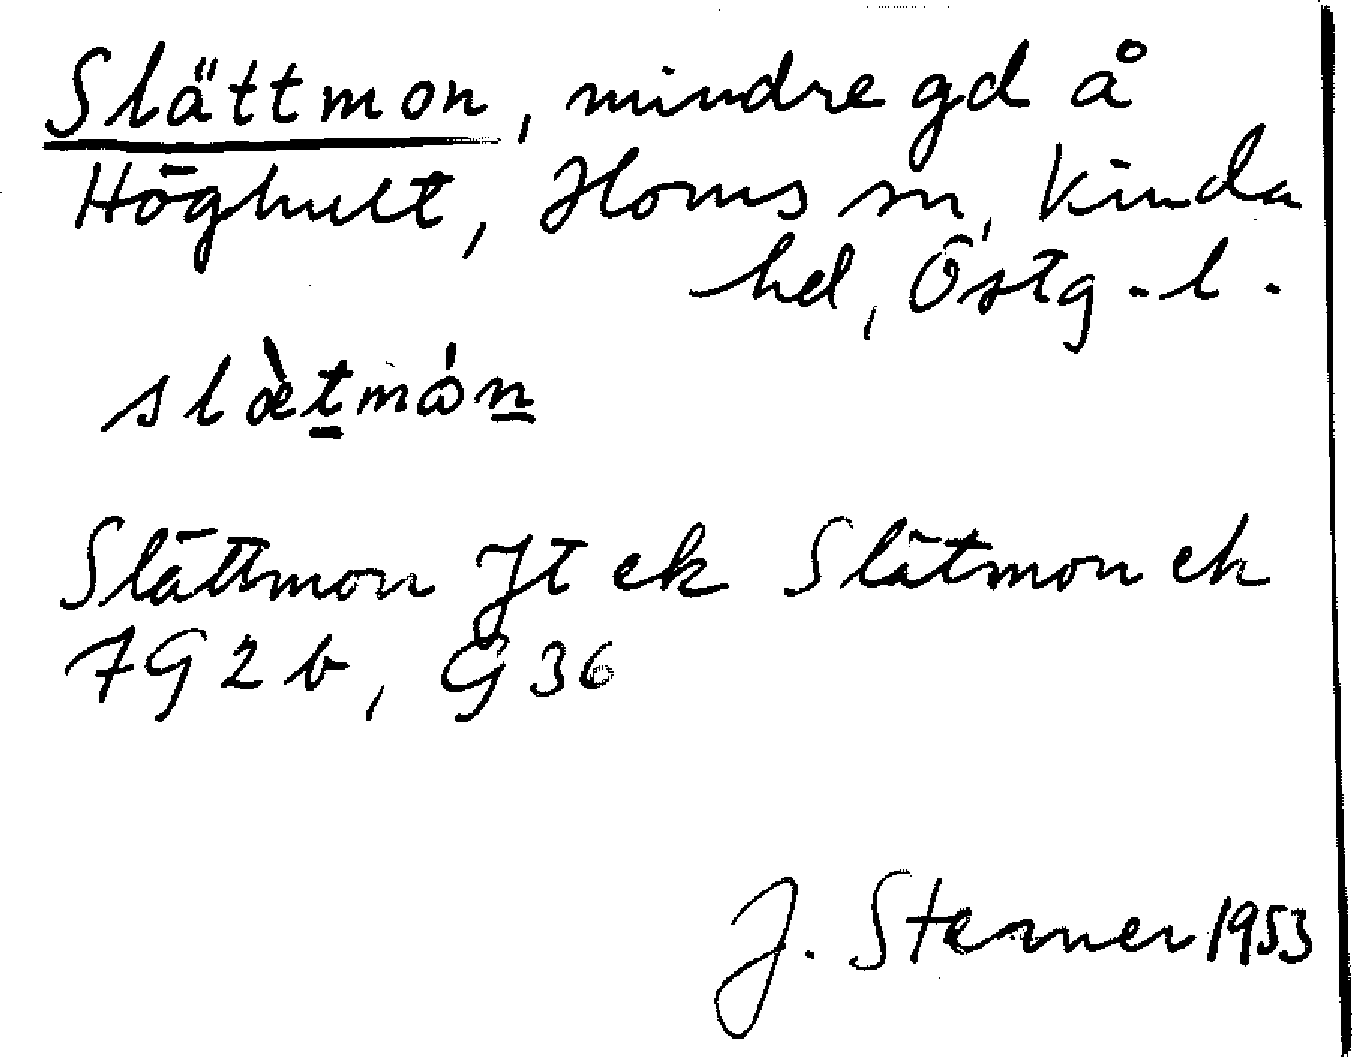 Slättmon, mindre gd å
Höghult, Horns sn, Kinda
hd, Östg.-l.
slæ̀tmȯ́n
Slättmon Jt ek Slätmon ek
7G2b, G36
J. Sterner 1953